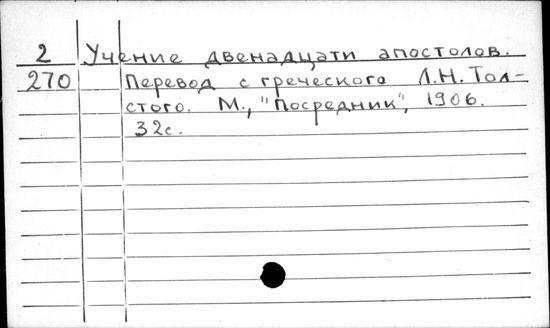 2 Учение двенадцати апостолов.
270 Перевод с греческого Л.Н. Тол-
стого. М., "Посредник", 1906.
32с.